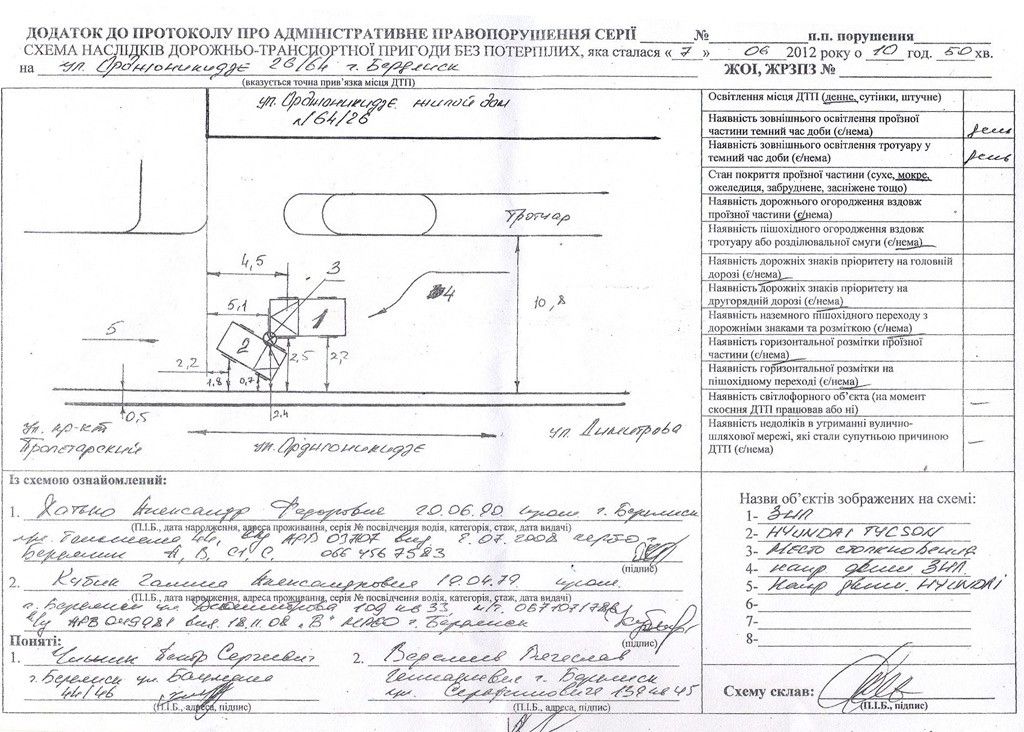 ДОДАТОК ДО ПРОТОКОЛУ ПРО АДМІНІСТРАТИВНЕ ПРАВОПОРУШЕННЯ СЕРІЇ № п.п. порушення
СХЕМА НАСЛІДКІВ ДОРОЖНЬО-ТРАНСПОРТНОЇ ПРИГОДИ БЕЗ ПОТЕРПІЛИХ, яка сталася « 7 » 06 2012 року о 10 год. 50 хв.
на ул. Орджоникидзе 26/64 г. Бердянск ЖОІ, ЖРЗПЗ №
(вказується точна прив'язка місця ДТП)
ул. Орджоникидзе жилой дом
№ 64/26
тротуар
4,5
3
4
5,1
1
10,8
5
2
2,2
2,5
2,2
1.8
0,7
0,5
2.4
Ул. пр-кт
Пролетарский
ул. Орджоникидзе
ул. Димитрова
Освітлення місця ДТП (денне, сутінки, штучне)
Наявність зовнішнього освітлення проїзної
частини темний час доби (є/нема) день
Наявність зовнішнього освітлення тротуару у
темний час доби (є/нема) день
Стан покриття проїзної частини (сухе, мокре,
ожеледиця, забруднене, засніжене тощо)
Наявність дорожнього огородження вздовж
проїзної частини (є/нема)
Наявність пішохідного огородження вздовж
тротуару або розділювальної смуги (є/нема)
Наявність дорожніх знаків пріоритету на головній
дорозі (є/нема)
Наявність дорожніх знаків пріоритету на
другорядній дорозі (є/нема)
Наявність наземного пішохідного переходу з
дорожніми знаками та розміткою (є/нема)
Наявність горизонтальної розмітки проїзної
частини (є/нема)
Наявність горизонтальної розмітки на
пішохідному переході (є/нема)
Наявність світлофорного об'єкта (на момент
скоєння ДТП працював або ні) —
Наявність недоліків в утриманні вулично-
шляхової мережі, які стали супутньою причиною
ДТП (є/нема) —
Із схемою ознайомлений:
1. Александр Федорович 20.06.90 г. Бердянск
(П.І.Б., дата народження, адреса проживання, серія № посвідчення водія, категорія, стаж, дата видачі)
АРВ 03707 8.07.2008
Бердянск А, В, С1, С, 066 456 7583
(підпис)
2. Кубик Галина Александровна 19.04.79
(П.І.Б., дата народження, адреса проживання, серія № посвідчення водія, категорія, стаж, дата видачі)
г. Бердянск ул. 109 кв 33,
в/у АРВ 18.11.08 "В" МРЭО г. Бердянск
(підпис)
Поняті:
1. Петр Сергеевич
г. Бердянск ул.
44/46
(П.І.Б., адреса, підпис)
2. Вячеслав
Геннадиевич г. Бердянск
(П.І.Б., адреса, підпис)
Назви об'єктів зображених на схемі:
1- ЗИЛ
2- HYUNDAI TYCSON
3- Место столкновения
4- напр. движ ЗИЛ
5- напр движ. HYUNDAI
6-
7-
8-
Схему склав:
(П.І.Б., підпис)